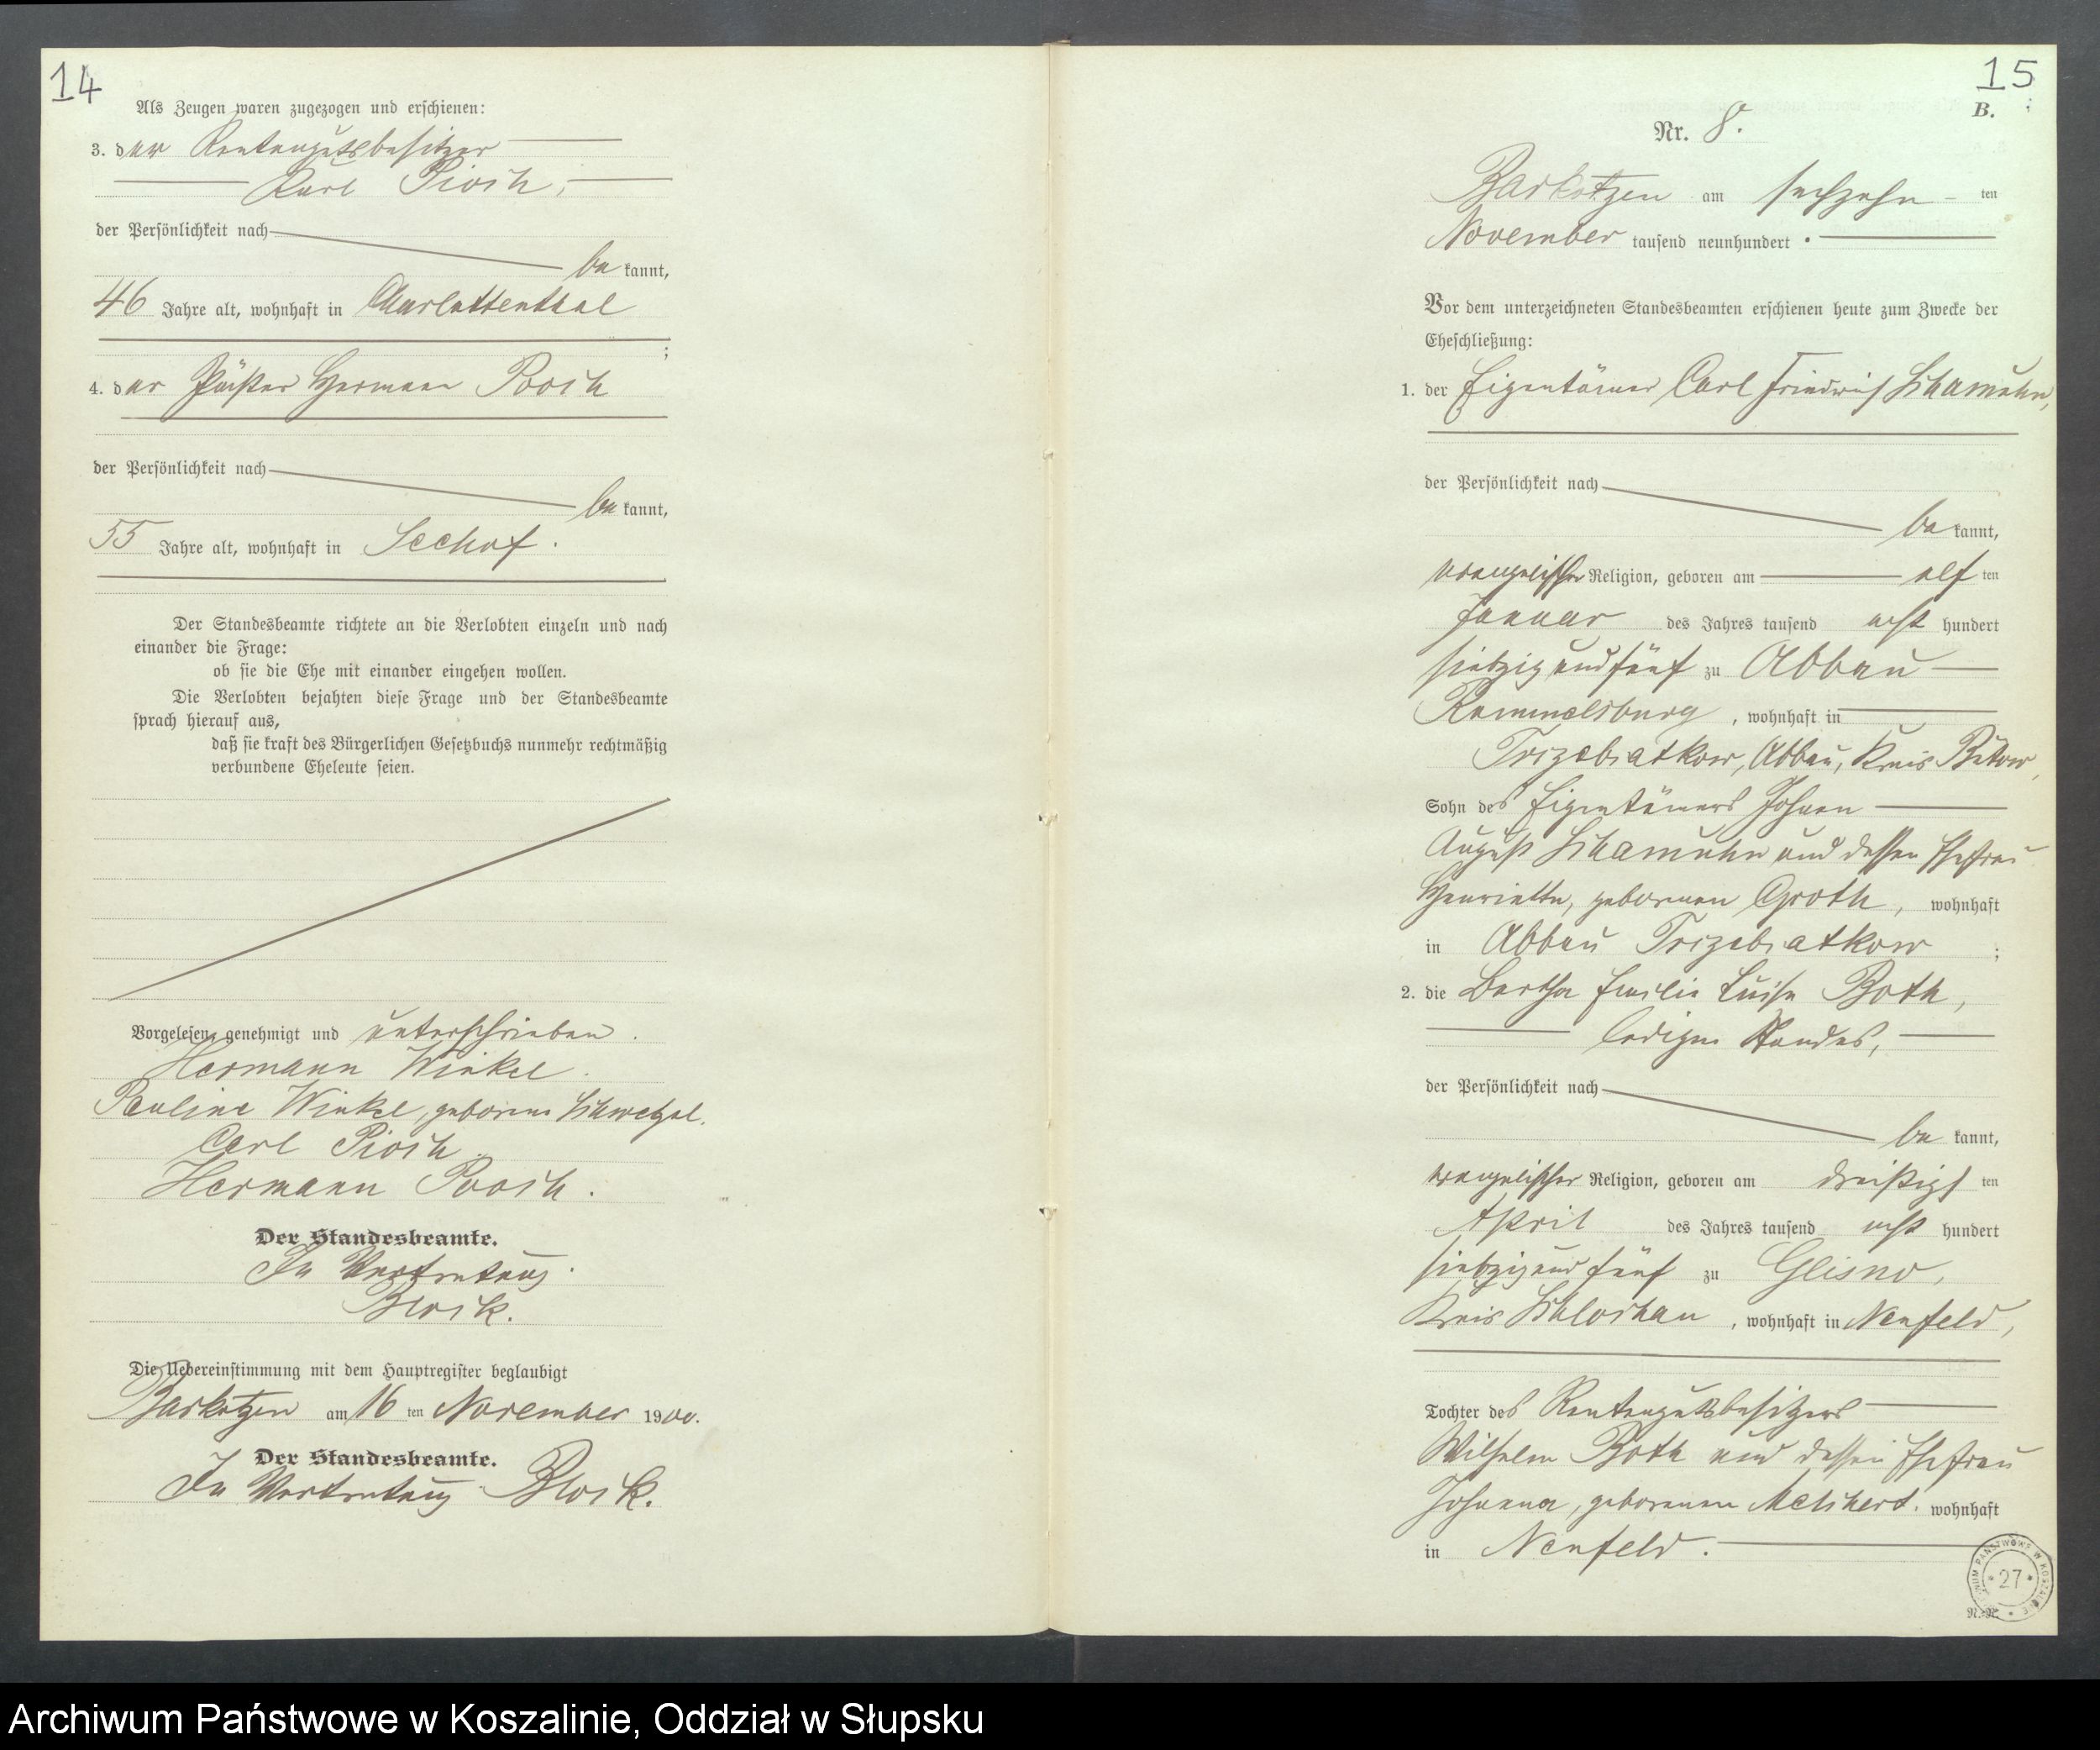 14
Als Zeugen waren zugezogen und erschienen:
3. der Rentengutsbesitzer
Karl Piosch,
der Persönlichkeit nach
be kannt,
46 Jahre alt, wohnhaft in Charlottenthal
;
4. der Hermann Poosch
der Persönlichkeit nach
be kannt,
55 Jahre alt, wohnhaft in Seehof.
Der Standesbeamte richtete an die Verlobten einzeln und nach
einander die Frage:
ob sie die Ehe mit einander eingehen wollen.
Die Verlobten bejahten diese Frage und der Standesbeamte
sprach hierauf aus,
daß sie kraft des Bürgerlichen Gesetzbuchs nunmehr rechtmäßig
verbundene Eheleute seien.
Vorgelesen, genehmigt und unterschrieben.
Hermann Winkel.
Pauline Winkel, geborene Schwetzel.
Carl Piosch.
Hermann Poosch.
Der Standesbeamte.
In Vertretung.
Block.
Die Uebereinstimmung mit dem Hauptregister beglaubigt
Barkotzen am 16 ten November 1900.
Der Standesbeamte.
In Vertretung Block.
15
B.
Nr. 8.
Barkotzen am sechzehn ten
November tausend neunhundert
Vor dem unterzeichneten Standesbeamten erschienen heute zum Zwecke der
Eheschließung:
1. der Eigentümer Carl Friedrich Schamuhn,
der Persönlichkeit nach
be kannt,
evangelischer Religion, geboren am elf ten
Januar des Jahres tausend acht hundert
siebzig und fünf zu Abbau
Rummelsburg, wohnhaft in
Trzebiatkow, Abbau, Kreis Bütow,
Sohn des Eigentümers Johann
August Schamuhn und dessen Ehefrau
Henriette, geborenen Groth, wohnhaft
in Abbau Trzebiatkow ;
2. die Bertha Emilie Luise Both,
ledigen Standes,
der Persönlichkeit nach
be kannt,
evangelischer Religion, geboren am dreißigs ten
April des Jahres tausend acht hundert
siebzig und fünf zu Glisno,
Kreis Schlochau, wohnhaft in Neufeld,
Tochter des Rentengutsbesitzers
Wilhelm Both und dessen Ehefrau
Johanna, geborenen Melchert. wohnhaft
in Neufeld.
27
Archiwum Państwowe w Koszalinie, Oddział w Słupsku